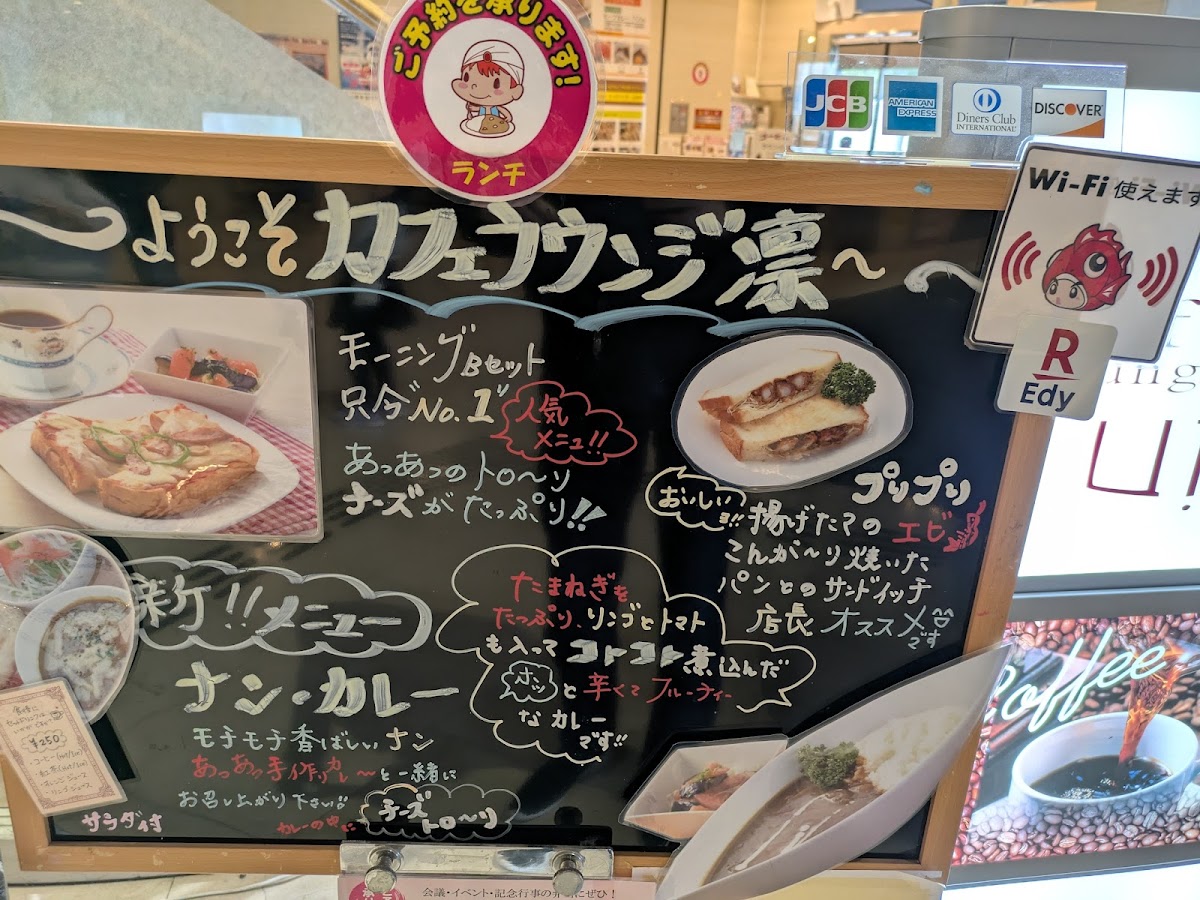 ご予約を承ります!
ランチ
JCB
AMERICAN EXPRESS
Diners Club INTERNATIONAL
DISCOVER
Wi-Fi 使えます
R
Edy
〜ようこそ カフェラウンジ 凛〜
モーニングBセット
只今No.1"
人気
メニュー!!
あつあつのトロ〜リ
チーズがたっぷり!!
プリプリ
おいしいョ!!
揚げたての エビ
こんが〜り焼いた
パンとのサンドイッチ
店長 オススメ
です
新!!メニュー
ナン・カレー
モチモチ香ばしいナン
あつあつ手作りカレ〜と一緒に
お召し上がり下さい!!
サラダ付
カレーの中に
チーズ
トロ〜リ
たまねぎを
たっぷり、リンゴとトマト
も入って コトコト煮込んだ
ホッと辛くてフルーティー
なカレー
です!!
¥250
・コーヒー
・オレンジジュース
・リンゴジュース
Coffee
会議・イベント・記念行事の
ぜひ!